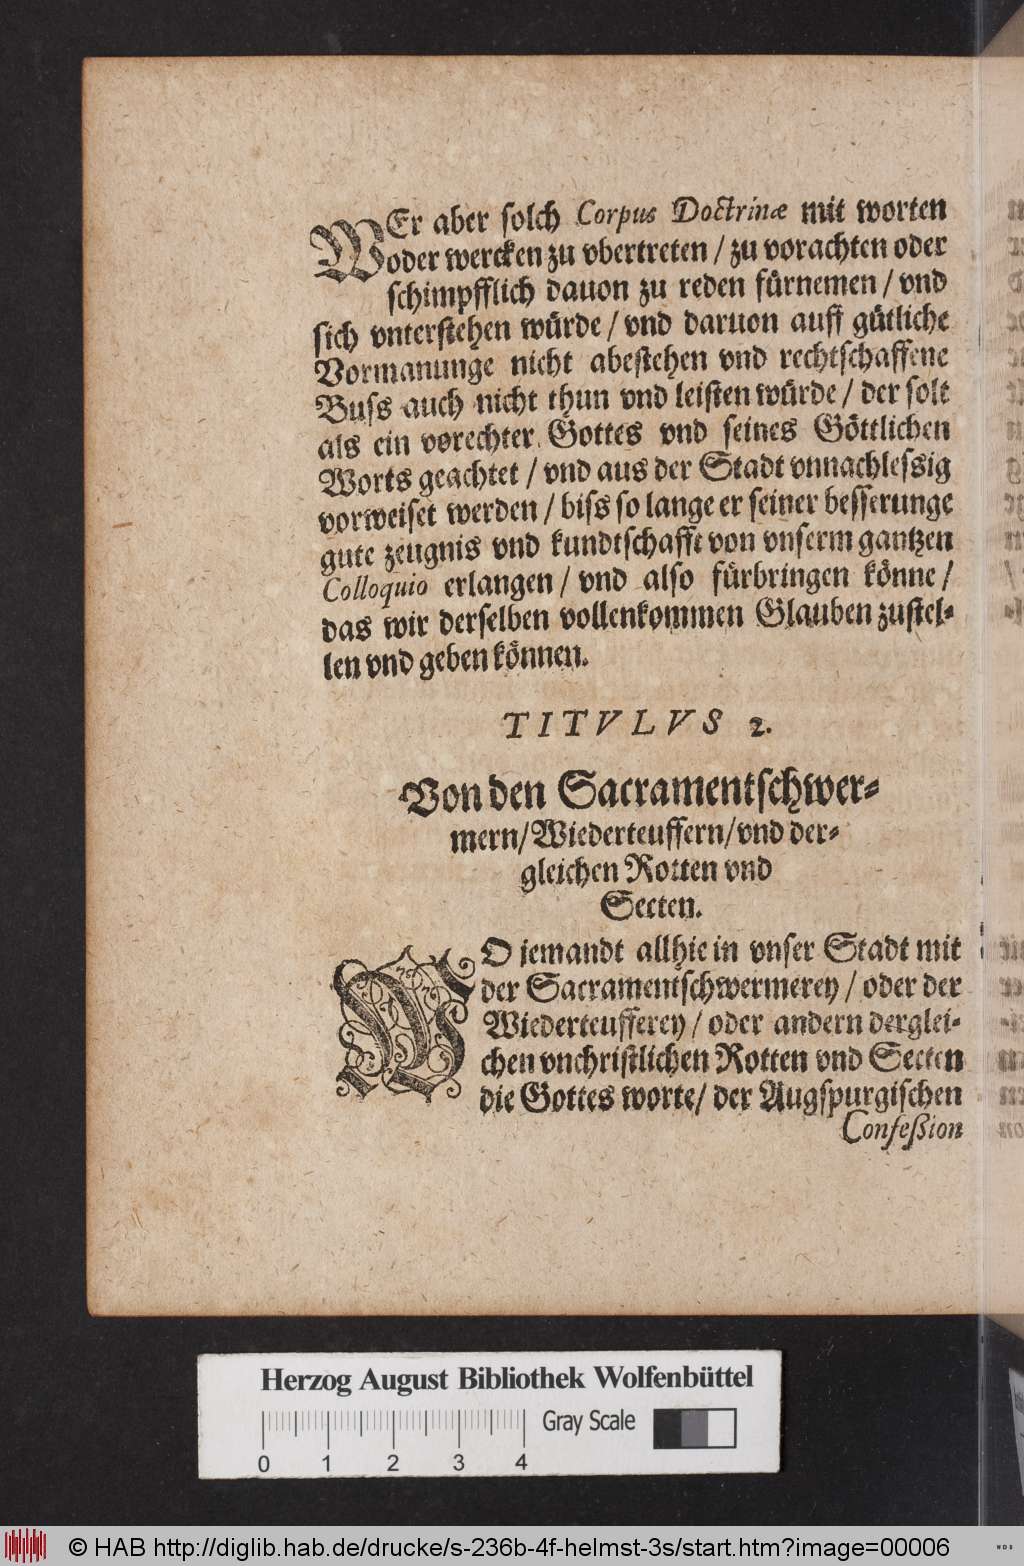 WEr aber solch Corpus Doctrinæ mit worten
oder wercken zu vbertreten / zu vorachten oder
schimpfflich dauon zu reden fürnemen / vnd
sich vnterstehen würde / vnd daruon auff gütliche
Vormanunge nicht abestehen vnd rechtschaffene
Buss auch nicht thun vnd leisten würde / der solt
als ein vorechter Gottes vnd seines Göttlichen
Worts geachtet / vnd aus der Stadt vnnachlessig
vorweiset werden / biss so lange er seiner besserunge
gute zeugnis vnd kundtschafft von vnserm gantzen
Colloquio erlangen / vnd also fürbringen könne /
das wir derselben vollenkommen Glauben zustel-
len vnd geben können.
TITVLVS 2.
Von den Sacramentschwer-
mern/Wiederteuffern/vnd der-
gleichen Rotten vnd
Secten.
WO jemandt allhie in vnser Stadt mit
der Sacramentschwermerey / oder der
Wiederteufferey / oder andern derglei-
chen vnchristlichen Rotten vnd Secten
die Gottes worte/ der Augspurgischen
Confeßion
Herzog August Bibliothek Wolfenbüttel
Gray Scale
0 1 2 3 4
© HAB http://diglib.hab.de/drucke/s-236b-4f-helmst-3s/start.htm?image=00006